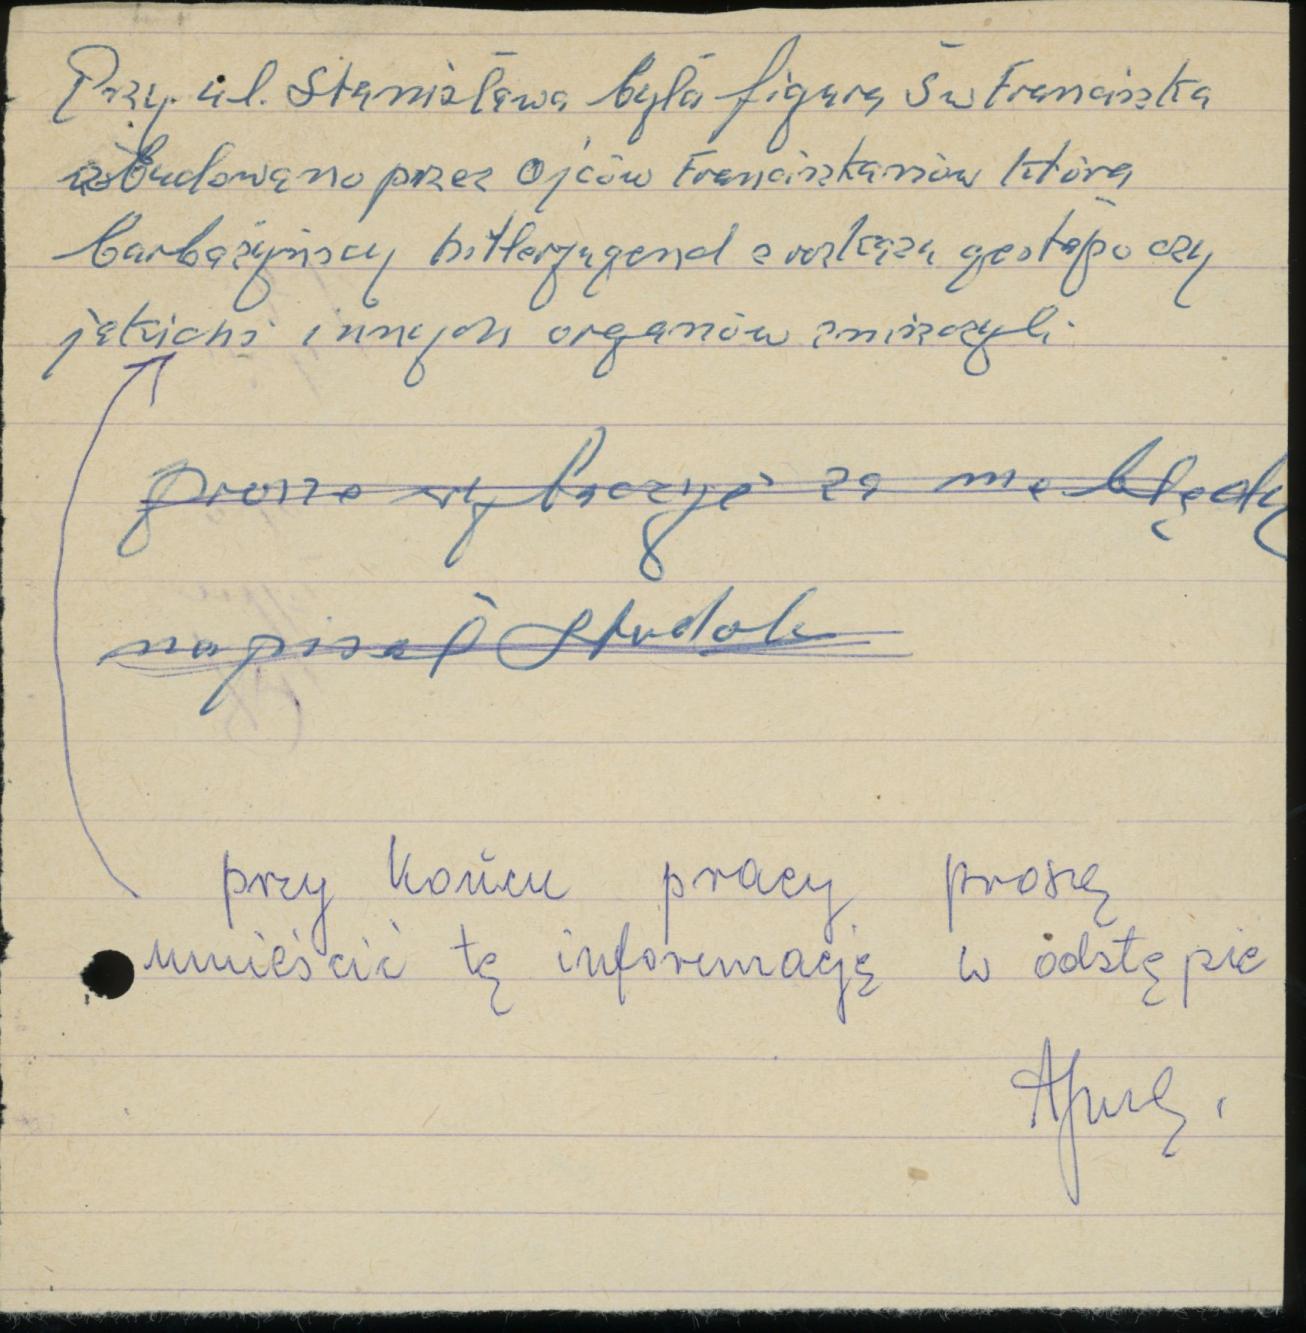 Przy ul. Stanisława była figura Św Franciszka
zbudowano przez Ojców Franciszkanów która
barbażyńscy hitlerjugend z rozkazu gestapo czy
jakichś innych organów zniszczyli.
prosze wybaczyć za me błędy
napisał Studok
przy końcu pracy proszę
umieścić tę informację w odstępie